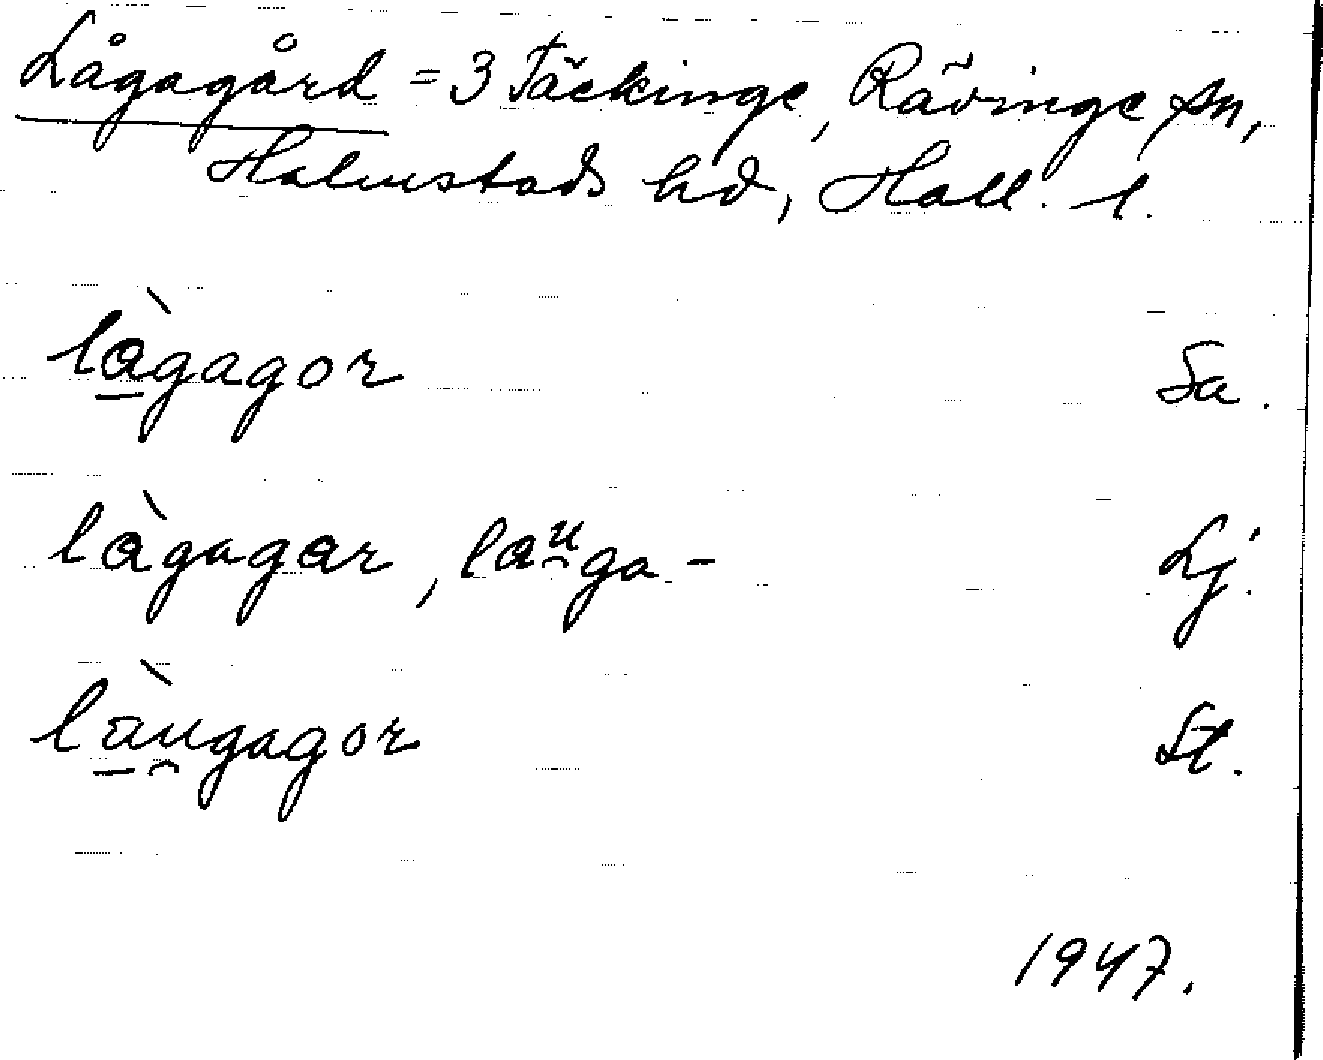 Lågagård = 3 Täckinge, Rävinge sn,
Halmstads hd, Hall. l.
làgagor Sa.
làgagar, lauga- Lj.
làugagor St.
1947.